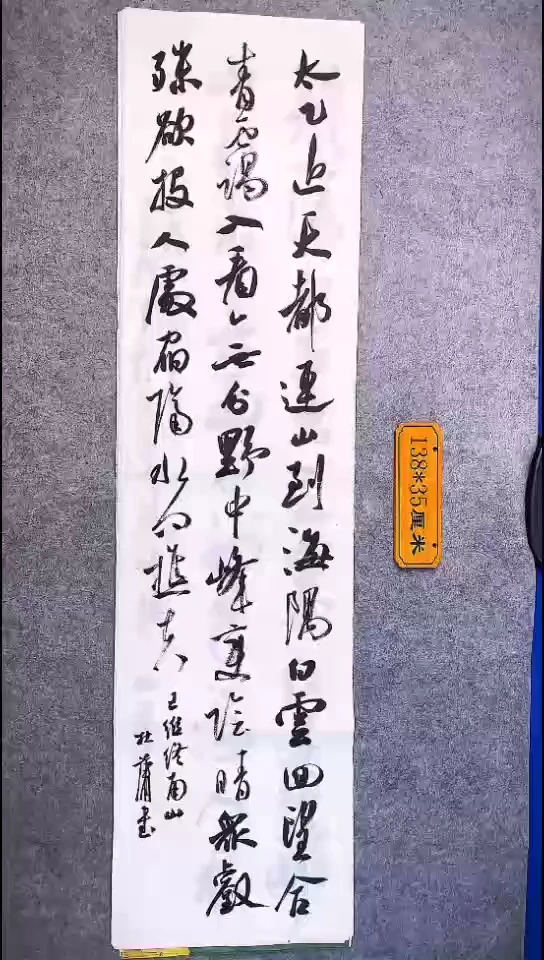 太乙近天都連山到海隅白雲回望合
青靄入看无分野中峰變陰晴眾壑
殊欲投人處宿隔水问樵夫
王維終南山
杜書
138*35厘米